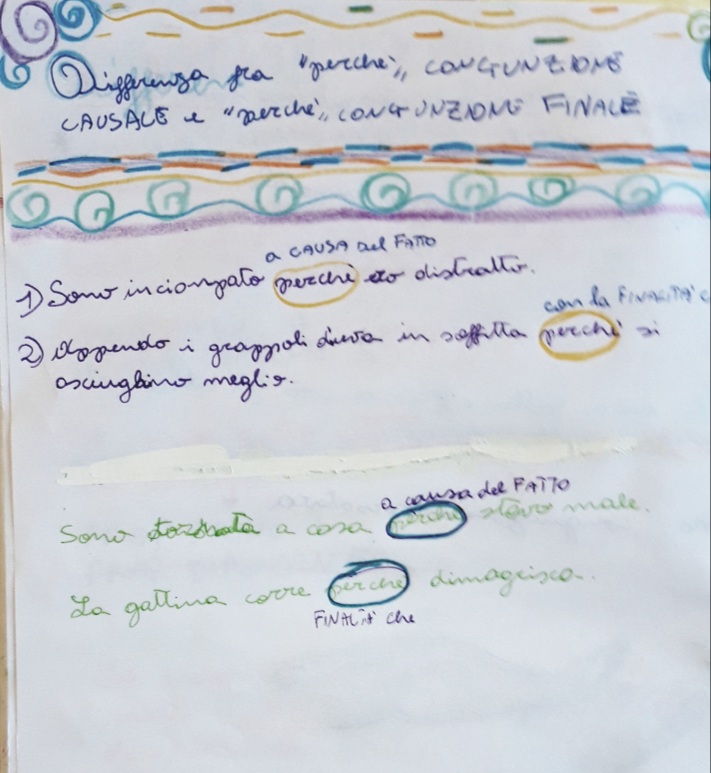 Differenza fra "perché„ CONGIUNZIONE
CAUSALE e "perché„ CONGIUNZIONE FINALE
a CAUSA del FATTO
1) Sono inciampato perché ero distratto.
con la FINALITA' c
2) Appendo i grappoli d'uva in soffitta perché si
asciughino meglio.
a causa del FATTO
Sono tornata a casa perché stavo male.
La gattina corre perché dimagrisca.
FINALITA' che